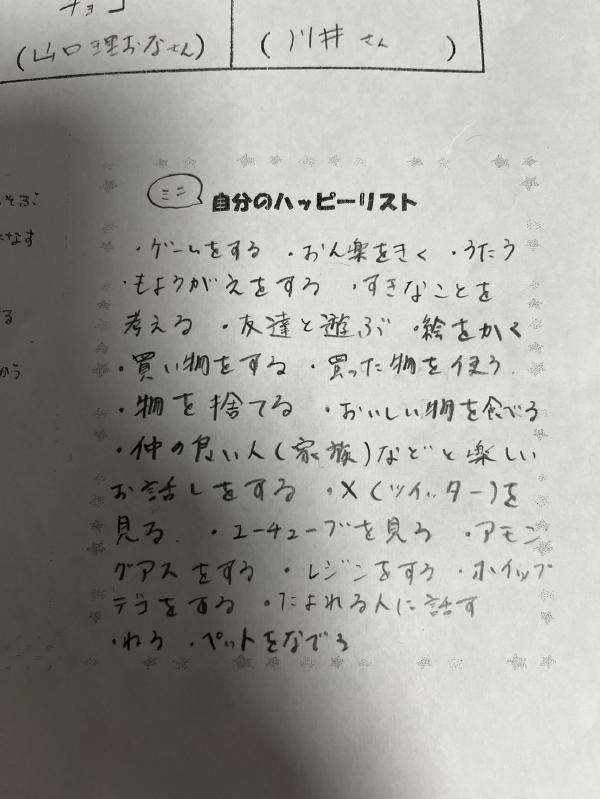 チョコ
(山口理おなさん)
(川井さん)
ミニ
自分のハッピーリスト
・ゲームをする ・おん楽をきく ・うたう
・もようがえをする ・すきなことを
考える ・友達と遊ぶ ・絵をかく
・買い物をする ・買った物を使う
・物を捨てる ・おいしい物を食べる
・仲の良い人(家族)などと楽しい
お話しをする ・X(ツイッター)を
見る ・ユーチューブを見る ・アモン
グアスをする ・レジンをする ・ホイップ
デコをする ・たよれる人に話す
・ねる ・ペットをなでる